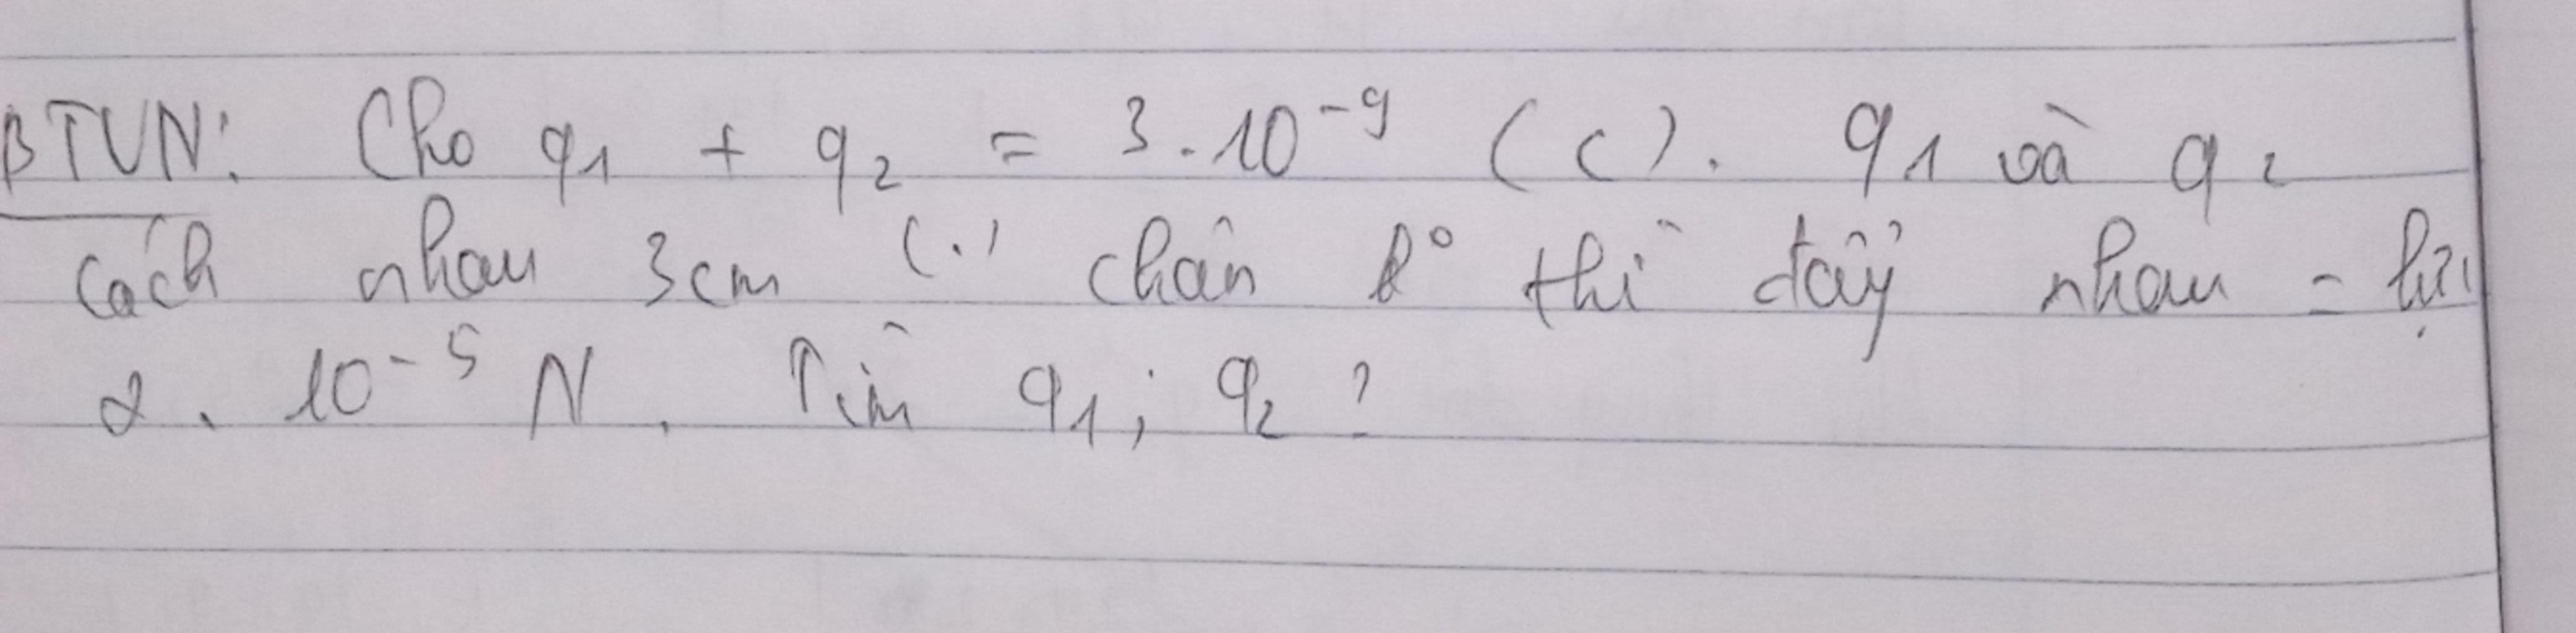 BTVN: Cho q1 + q2 = 3.10⁻⁹ (C). q1 và q2
cách nhau 3cm (.) chân k° thì đẩy nhau = lực
2.10⁻⁵ N. Tìm q1; q2?